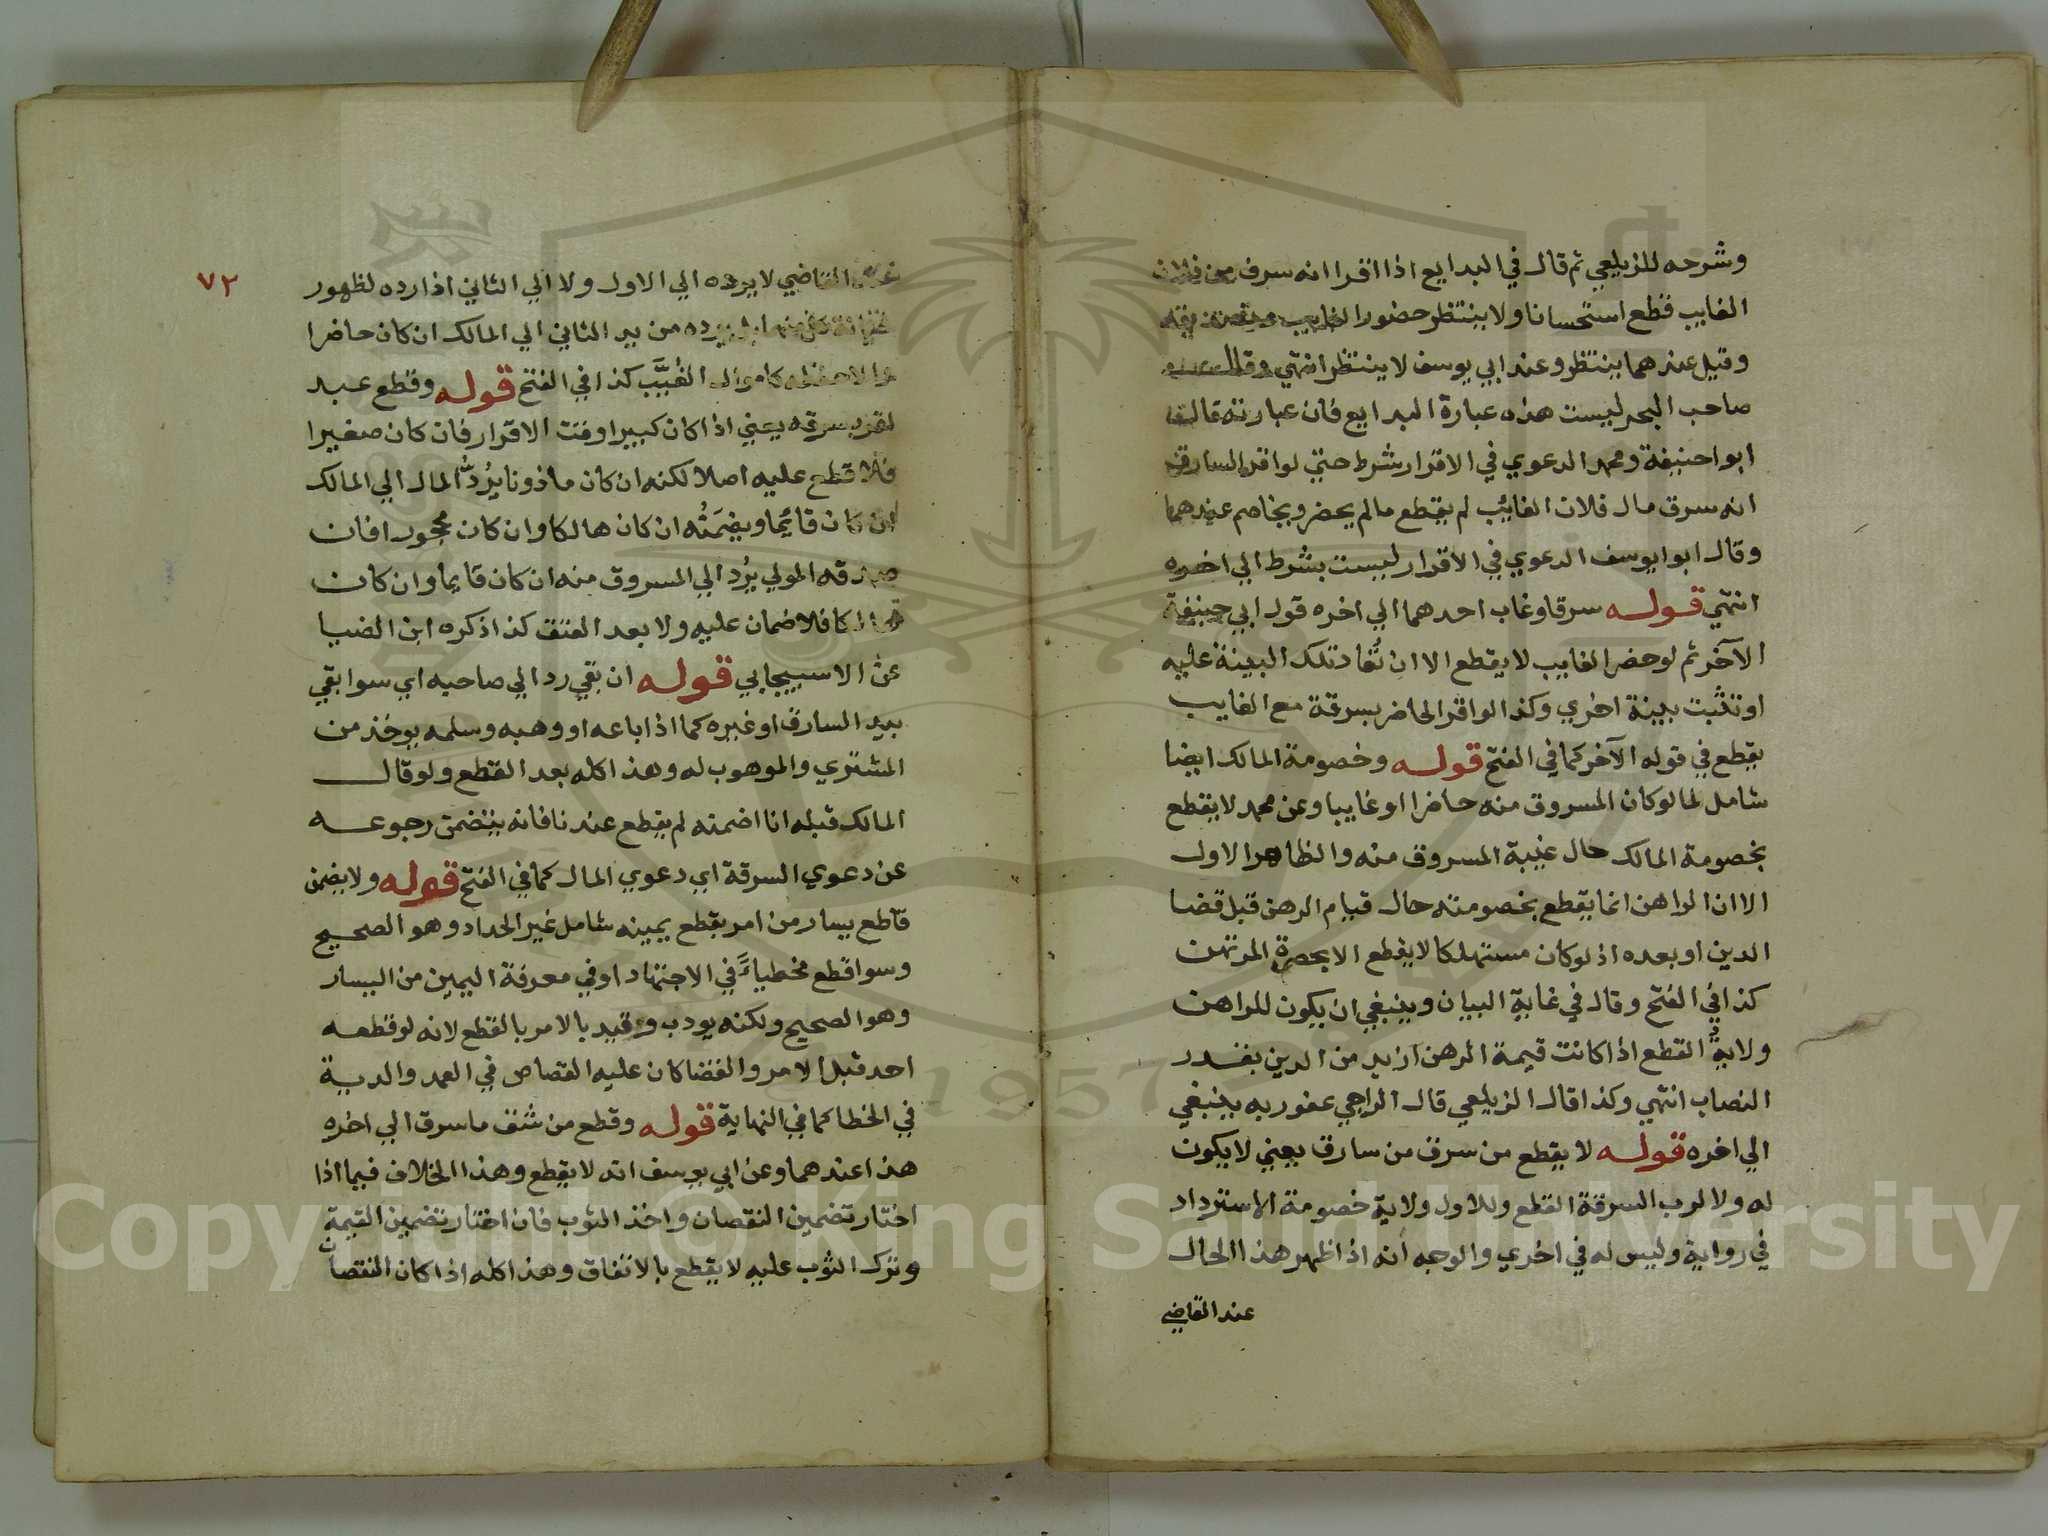 وشرحه للزيلعي ثم قال في البدايع اذا اقر انه سرق من فلان
الغايب قطع استحسانا ولا ينتظر حضور الغايب وتصديقه
وقيل عندهما ينتظر وعند ابي يوسف لا ينتظر انتهي وقال
صاحب البحر ليست هذه عبارة البدايع فان عبارته قالت
ابو احنيفة ومحمد الدعوي في الاقرار شرط حتي لو اقر السارق
انه سرق مال فلان الغائب لم يقطع ما لم يحضر ويخاصم عندهما
وقال ابو ايوسف الدعوي في الاقرار ليست بشرط الي اخره
انتهي قوله سرقا وغاب احدهما الي اخره قول ابي حنيفة
الآخر ثم لو حضر الغايب لا يقطع الا ان تُعاد تلك البينة عليه
او تثبت بينة اخري وكذا لو اقر الحاضر بسرقة مع الغايب
يقطع في قوله الآخر كما في الفتح قوله وخصومة المالك ايضا
شامل لما لو كان المسروق منه حاضرا او غايبا وعن محمد لا يقطع
بخصومة المالك حال غيبة المسروق منه والظاهر الاول
الا ان الراهن انما يقطع بخصومته حال قيام الرهن قبل قضا
الدين او بعده اذ لو كان مستهلكا لا يقطع الا بحضرة المرتهن
كذا في الفتح وقال في غاية البيان وينبغي ان يكون للراهن
ولاية القطع اذا كانت قيمة الرهن ازيد من الدين بقدر
النصاب انتهي وكذا قال الزيلعي قال الراجي عفو ربه ينبغي
الي اخره قوله لا يقطع من سرق من سارق يعني لا يكون
له ولا لرب السرقة القطع وللاول ولاية خصومة الاسترداد
في رواية وليس له في اخري والوجه انه اذا ظهر هذا الحال
عند القاضي
٧٢
القاضي لا يرده الي الاول ولا الي الثاني اذا رده لظهور
خيانة كل منهما بل يرده من يد الثاني الي المالك ان كان حاضرا
والا حفظه كاموال الغُيَّب كذا في الفتح قوله وقطع عبد
اقر بسرقه يعني اذا كان كبيرا وقت الاقرار فان كان صغيرا
فلا قطع عليه اصلا لكنه ان كان ماذونا يُردُّ المال الي المالك
ان كان قائما ويضمنُه ان كان هالكا وان كان محجورا فان
صدقه المولي يُرد الي المسروق منه ان كان قايما وان كان
هالكا فلا ضمان عليه ولا بعد العتق كذا ذكره ابن الضيا
عن الاسبيجابي قوله ان بقي رد الي صاحبه اي سوا بقي
بيد السارق او غيره كما اذا باعه او وهبه وسلمه يوخذ من
المشتري والموهوب له وهذا كله بعد القطع ولو قال
المالك قبله انا اضمنه لم يقطع عندنا فانه يتضمن رجوعه
عن دعوي السرقة اي دعوي المال كما في الفتح قوله ولا يضمن
قاطع يسار من امر بقطع يمينه شامل غير الحداد وهو الصحيح
وسوا قطع مخطياءً في الاجتهاد او في معرفة اليمين من اليسار
وهو الصحيح ولكنه يودب وقيد بالامر بالقطع لانه لو قطعه
احد قبل الامر والقضا كان عليه القصاص في العمد والدية
في الخطا كما في النهاية قوله وقطع من شق ما سرق الي اخره
هذا عندهما وعن ابي يوسف انه لا يقطع وهذا الخلاف فيما اذا
اختار تضمين النقصان واخذ الثوب فان اختار تضمين القيمة
وترك الثوب عليه لا يقطع بالاتفاق وهذا كله اذا كان النقصان
Copyright © King Saud University
1957